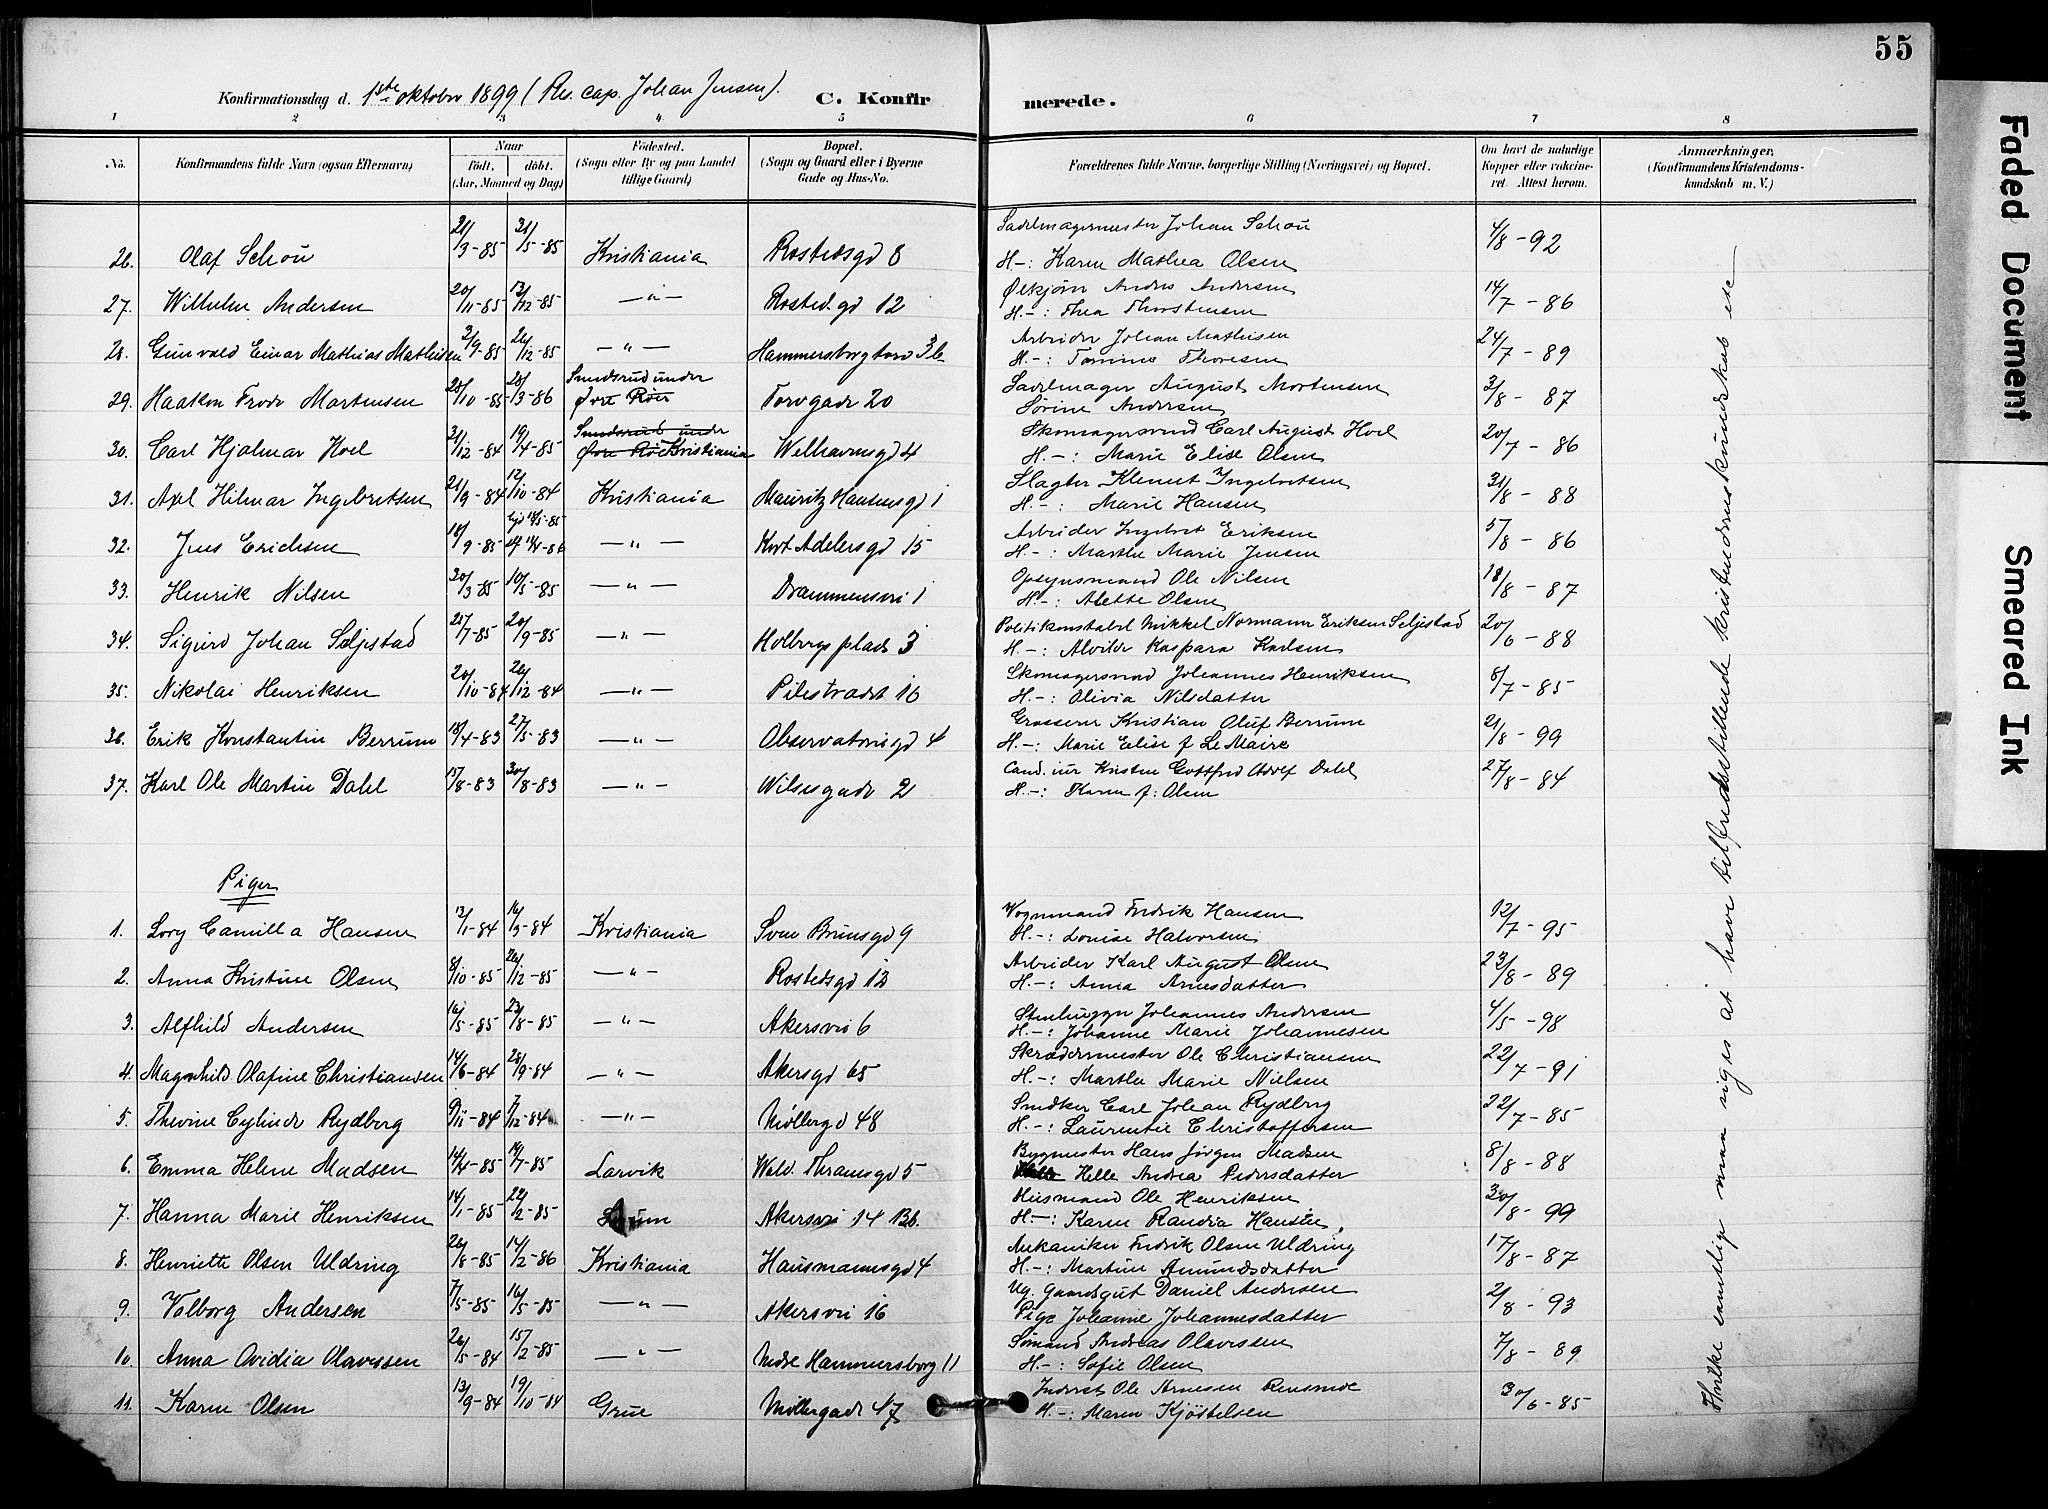 55
Konfirmationsdag d. 1ste oktober 1899 (Res. cap. Johan Jensen). C. Konfir merede.
1 2 3 4 5 6 7 8
No. Konfirmandens fulde Navn (ogsaa Efternavn) Naar født, døbt. (Aar, Maaned og Dag) Fødested. (Sogn eller By og paa Landet tillige Gaard) Bopæl. (Sogn og Gaard eller i Byerne Gade og Hus-No. Forældrenes fulde Navne, borgerlige Stilling (Næringsvei) og Bopæl. Om havt de naturlige Kopper eller vakcineret. Attest herom. Anmærkninger, (Konfirmandens Kristendomskundskab m. V.)
26. Olaf Schou 21/3-85 31/5-85 Kristiania Rostedsgd 8 Sadelmagermester Johan Schou 4/8-92
H-: Karen Mathea Olsen
27. Wilhelm Andersen 20/11-85 13/12-85 —"— Rostedsgd 12 Ølkjører Andr. Andersen 14/7-86
H.-: Thea Thorstensen
28. Gunvald Einar Mathias Mathisen 3/9-85 26/12-85 —"— Hammersborgtorv 3b Arbeider Johan Mathisen 24/7-89
H.-: Tomine Thoresen
29. Haakon Frode Martensen 28/10-85 28/3-86 Smedsrud under Øvre Røer Torvgade 20 Sadelmager August Mortensen 3/8-87
Sørine Andersen
30. Carl Hjalmar Hoel 31/12-84 19/4-85 Smedsrud under Øvre Kristiania Welhavensgd 4 Skomagersvend Carl August Hoel 20/7-86
H.-: Marie Elise Olsen
31. Axel Hilmar Ingebretsen 21/9-84 12/10-84 Kristiania Mauritz Hansensgd 1 Slagter Klemet Ingebretsen 31/8-88
H.-: Marie Hansen
32. Jens Erichsen 18/9-85 —"— Kort Adelersgd 15 Arbeider Ingebret Eriksen 5/8-86
H-: Marthe Marie Jensen
33. Henrik Nilsen 20/3-85 10/5-85 —"— Drammensvei 1 Opsynsmand Ole Nilsen 18/8-87
H.-: Alette Olsen
34. Sigurd Johan Seljestad 25/7-85 20/9-85 —"— Holbergs plads 3 Politikonstabel Mikkel Normann Eriksen Seljestad 20/6-88
H.-: Alvilde Kaspara Karlsen
35. Nikolai Henriksen 20/10-84 26/12-84 —"— Pilestrædet 16 Skomagersvend Johannes Henriksen 8/7-85
H-: Olivia Nilsdatter
36. Erik Konstantin Berrum 18/4-83 27/5-83 —"— Observatoriegd 4 Grosserer Kristian Oluf Berrum 21/8-99
H-: Marie Elise f Le Maire
37. Karl Ole Martin Dahl 15/8-83 30/8-83 —"— Wilsesgade 2 Cand. iur Kristen Gottfred Adolf Dahl 27/8-84
H-: Karen f: Olsen
Piger
1. Lovy Camilla Hansen 13/1-84 16/3-84 Kristiania Sven Brunsgd 9 Vognmand Fredrik Hansen 12/7-95
H-: Louise Halvorsen
2. Anna Kristine Olsen 8/10-85 26/12-85 —"— Rostedsgd 13 Arbeider Karl August Olsen 23/8-89
H.-: Anna Arnesdatter
3. Alfhild Andersen 16/5-85 23/8-85 —"— Akersvei 6 Stenhugger Johannes Andersen 4/5-98
H-: Johanne Marie Johannesen
4. Magnhild Olafine Christiansen 14/6-84 28/9-84 —"— Akersgd 65 Skrædermester Ole Christiansen 22/7-91
H.-: Marthe Marie Nielsen
5. Thevine Cylinde Rydberg 9/11-84 7/12-84 —"— Møllergd 48 Snedker Carl Johan Rydberg 22/7-85
H-: Laurentie Christoffersen
6. Emma Helene Madsen 14/4-85 19/7-85 Larvik Wald. Thranesgd 5 Bygmester Hans Jørgen Madsen 8/8-88
Helle Andrea Pedersdatter
7. Hanna Marie Henriksen 14/1-85 22/2-85 Akersvei 14 Bb. Huismand Ole Henriksen 30/8-99
H-: Karen Randia Hansen
8. Henriette Olsen Uldring 26/8-85 14/2-86 Kristiania Hausmannsgd 4 Mekaniker Fredrik Olsen Uldring 17/8-87
H.-: Martine Amundsdatter
9. Valborg Andersen 7/5-85 16/5-85 —"— Akersvei 16 Ug. Gaardsgut Daniel Andersen 2/8-93
Pige Johanne Johannesdatter
10. Anna Ovidia Olavesen 26/5-84 15/2-85 —"— Nedre Hammersborg 11 Sømand Andreas Olavesen 7/8-89
H-: Sofie Olsen
11. Karen Olsen 13/9-84 19/10-84 Grue Møllergade 47 Inderst Ole Arnesen Rensmoe 30/6-85
H-: Maren Kjøstelsen
Hvilke samtlige maa siges at have tilfredsstillende kristendomskundskab etc
Faded Document
Smeared Ink